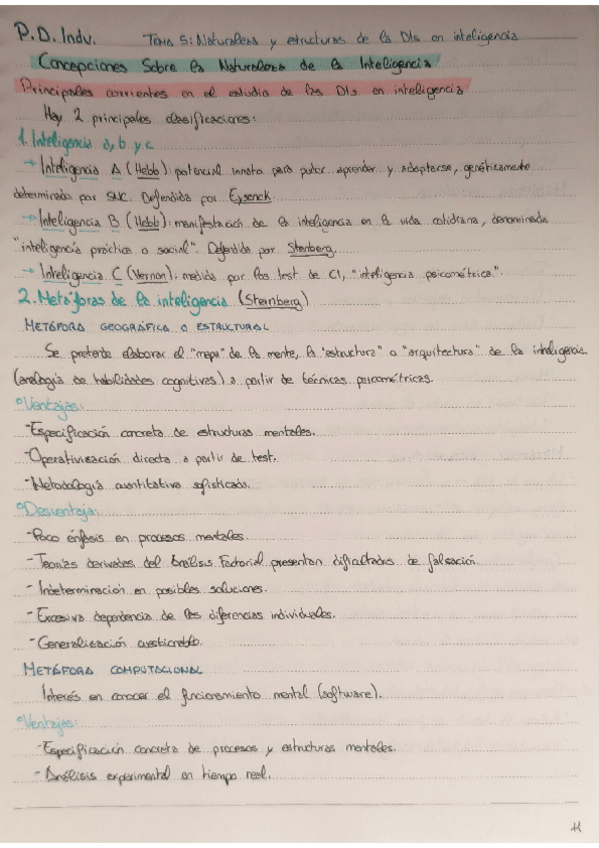 P.D. Indv. Tema 5: Naturaleza y estructuras de la DIs en inteligencia
Concepciones Sobre la Naturaleza de la Inteligencia
Principales corrientes en el estudio de las DIs en inteligencia
Hay 2 principales clasificaciones:
1. Inteligencia a, b y c
→ Inteligencia A (Hebb): potencial innato para poder aprender y adaptarse, genéticamente
determinada por SNC. Defendida por Eysenck.
→ Inteligencia B (Hebb): manifestación de la inteligencia en la vida cotidiana, denominada
"inteligencia práctica o social". Defendida por Stenberg.
→ Inteligencia C (Vernon): medida por los test de CI, "inteligencia psicométrica".
2. Metáforas de la inteligencia (Sternberg)
METÁFORA GEOGRÁFICA O ESTRUCTURAL
Se pretende elaborar el "mapa" de la mente, la "estructura" o "arquitectura" de la inteligencia.
(analogía de habilidades cognitivas) a partir de técnicas psicométricas.
Ventajas:
-Especificación concreta de estructuras mentales.
-Operativización directa a partir de test.
-Metodología cuantitativa sofisticada.
Desventaja:
-Poco énfasis en procesos mentales
-Teorías derivadas del Análisis Factorial presentan dificultades de falsación.
-Indeterminación en posibles soluciones.
-Excesiva dependencia de las diferencias individuales.
-Generalización cuestionable.
METÁFORA COMPUTACIONAL
Interés en conocer el funcionamiento mental (software).
Ventajas:
-Especificación concreta de procesos y estructuras mentales.
-Análisis experimental en tiempo real.